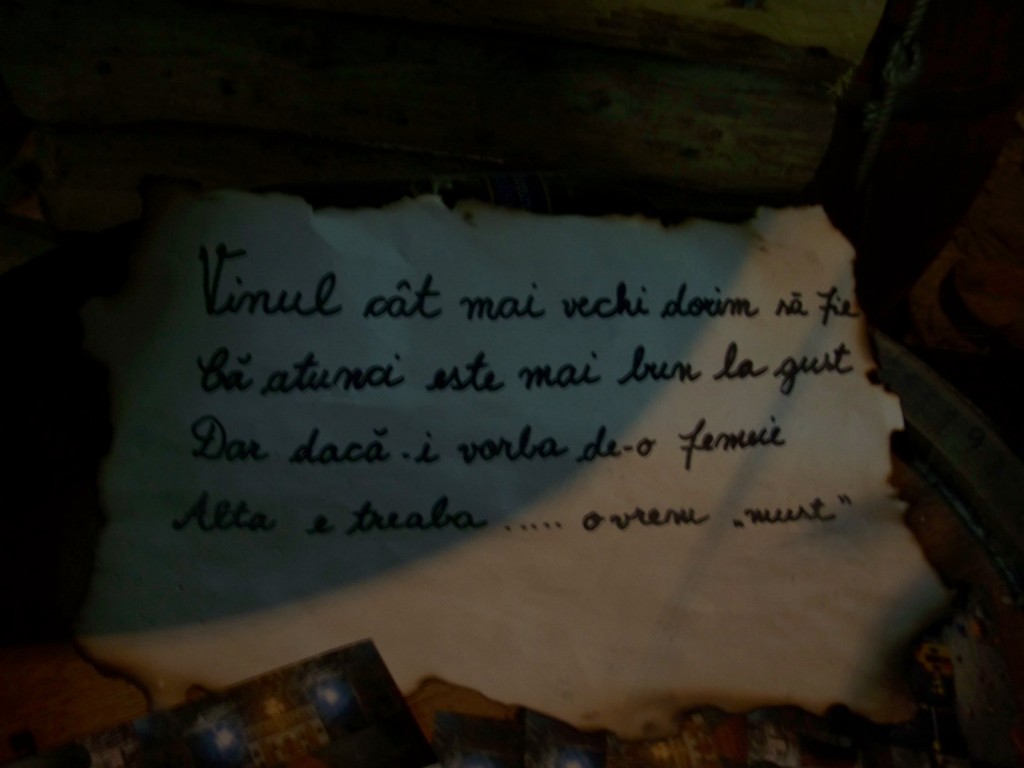 Vinul cât mai vechi dorim să fie
Că atunci este mai bun la gust
Dar dacă-i vorba de-o femeie
Alta e treaba ..... o vrem „must”